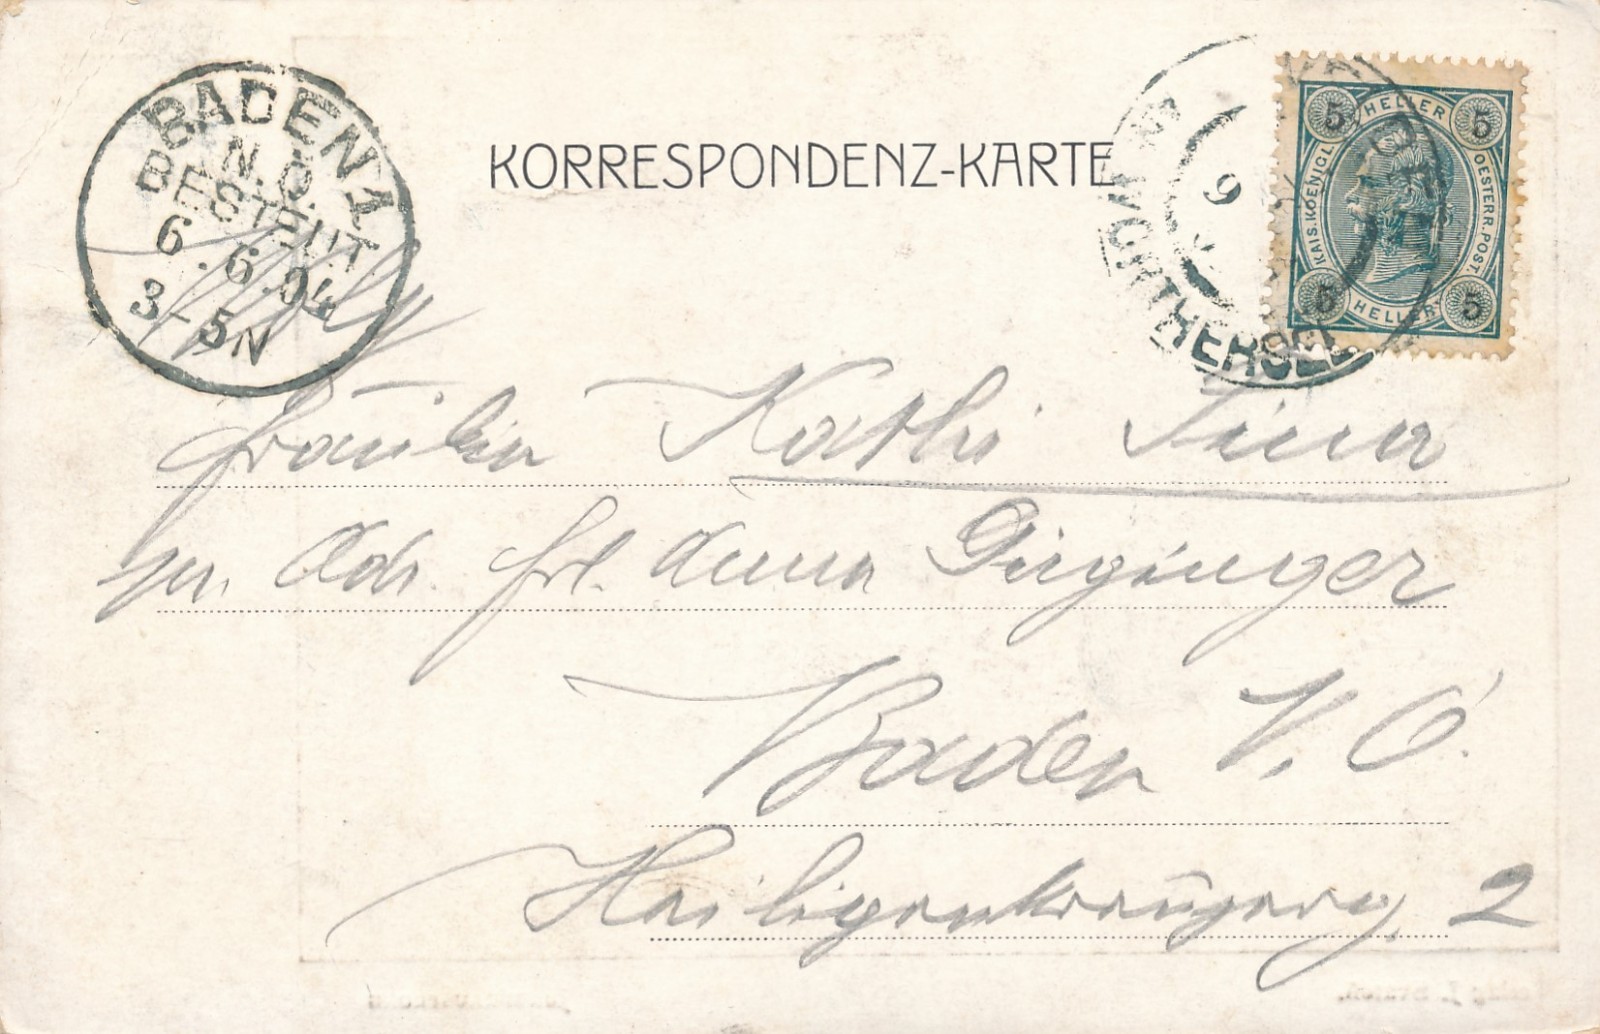 BADEN 1
N.Ö.
BESTELLT
6.6.04
3-5N
KORRESPONDENZ-KARTE
5 HELLER 5
KAIS. KOENIGL. OESTERR. POST.
5 HELLER 5
9
Fräulein Kathi
pr. Adr. Frl. Anna
Baden N. Ö.
2